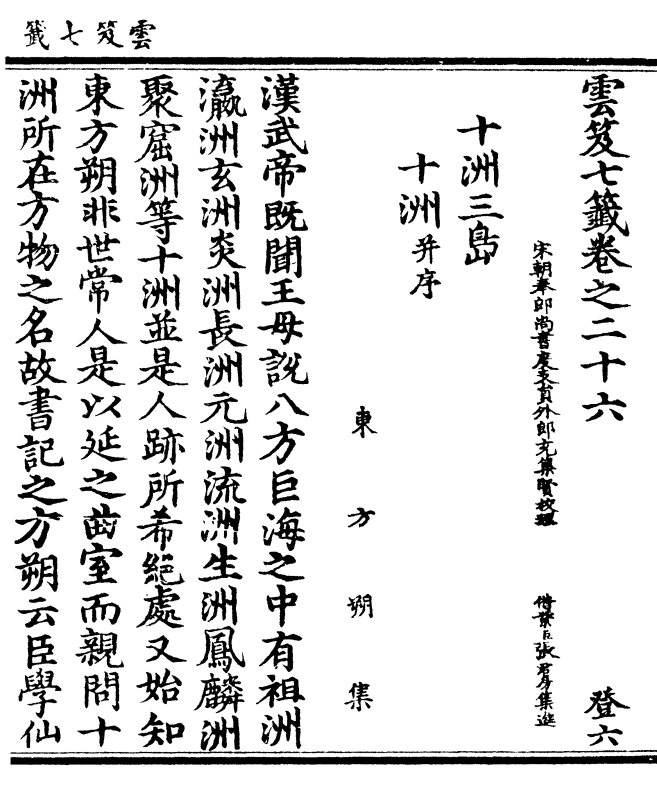 雲笈七籤
雲笈七籤卷之二十六　登六
宋朝奉郎尚書度支員外郎充集賢校理　借紫臣張君房集進
十洲三島
十洲并序
東方朔集
漢武帝既聞王母說八方巨海之中有祖洲
瀛洲玄洲炎洲長洲元洲流洲生洲鳳麟洲
聚窟洲等十洲並是人跡所希絕處又始知
東方朔非世常人是以延之曲室而親問十
洲所在方物之名故書記之方朔云臣學仙